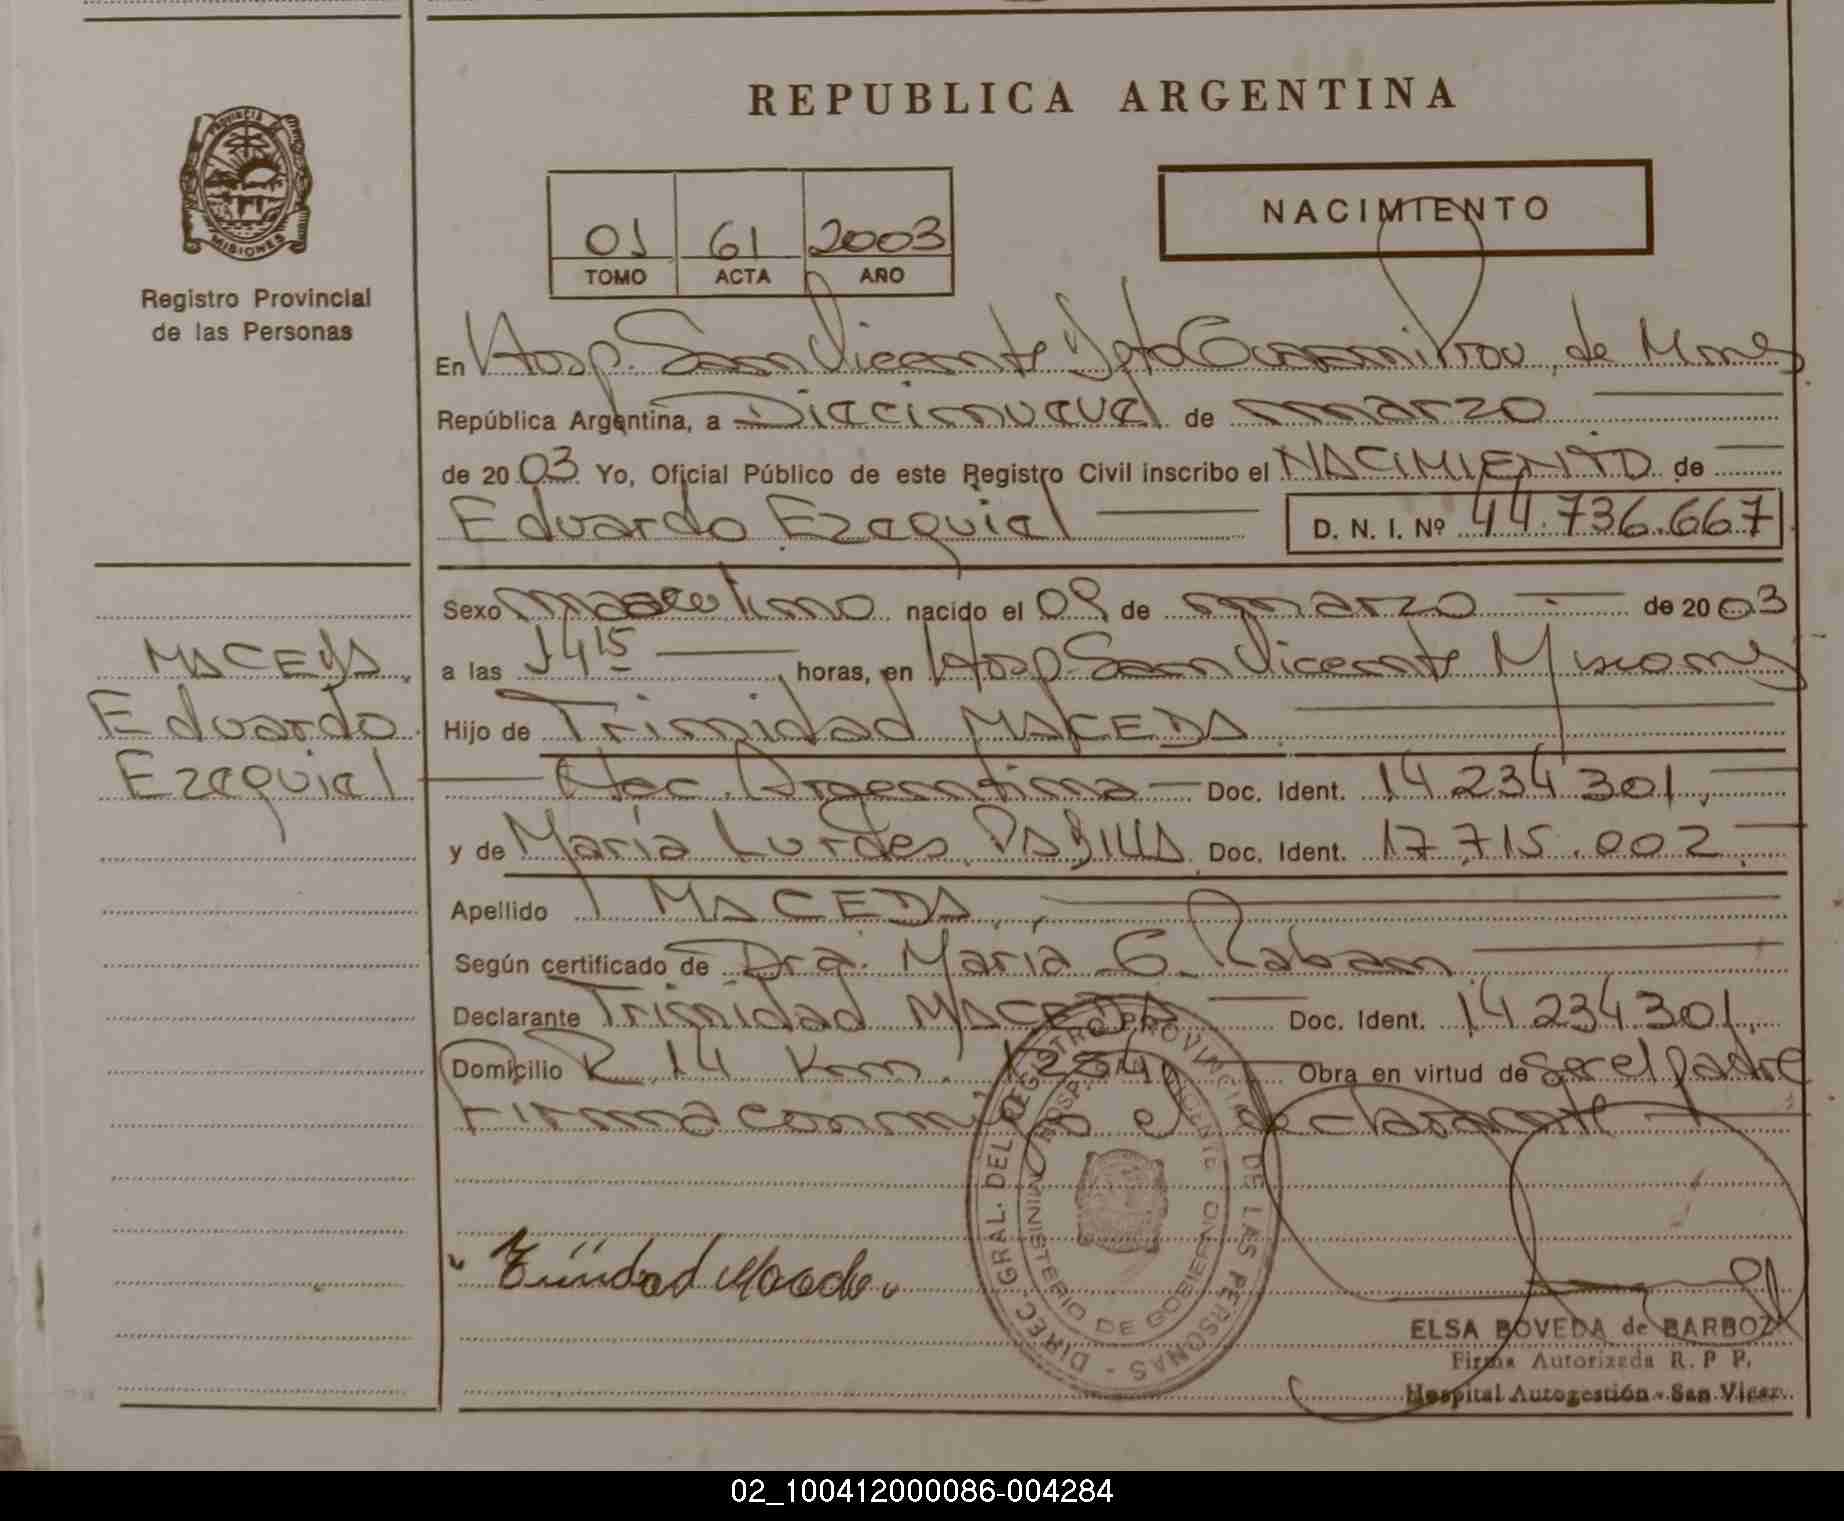 REPUBLICA ARGENTINA
PROVINCIA DE MISIONES
Registro Provincial
de las Personas
01 61 2003
TOMO ACTA AÑO
NACIMIENTO
En Hosp. San Vicente Dpto Guarani Prov. de Mnes
República Argentina, a Diecinueve de marzo
de 2003 Yo, Oficial Público de este Registro Civil inscribo el NACIMIENTO de
Eduardo Ezequiel D. N. I. Nº 44.736.667
Sexo masculino nacido el 09 de marzo de 2003
MACEDA
a las 14 15 horas, en Hosp. San Vicente Misiones
Eduardo
Hijo de Trinidad MACEDA
Ezequiel
Nac. Argentina Doc. Ident. 14 234 301,
y de María Lurdes PADILLA Doc. Ident. 17.715.002
Apellido MACEDA
Según certificado de Dra. María G. Raban
Declarante Trinidad MACEDA Doc. Ident. 14 234 301,
Domicilio R. 14 Km. 1284 Obra en virtud de ser el padre
Firma conmigo el declarante
Trinidad Maceda
DIREC. GRAL. DEL REGISTRO PROVINCIAL DE LAS PERSONAS
MINISTERIO DE GOBIERNO
HOSP. VICENTE
ELSA BOVEDA de BARBOZA
Firma Autorizada R. P P.
Hospital Autogestión - San Vicen.
02_100412000086-004284